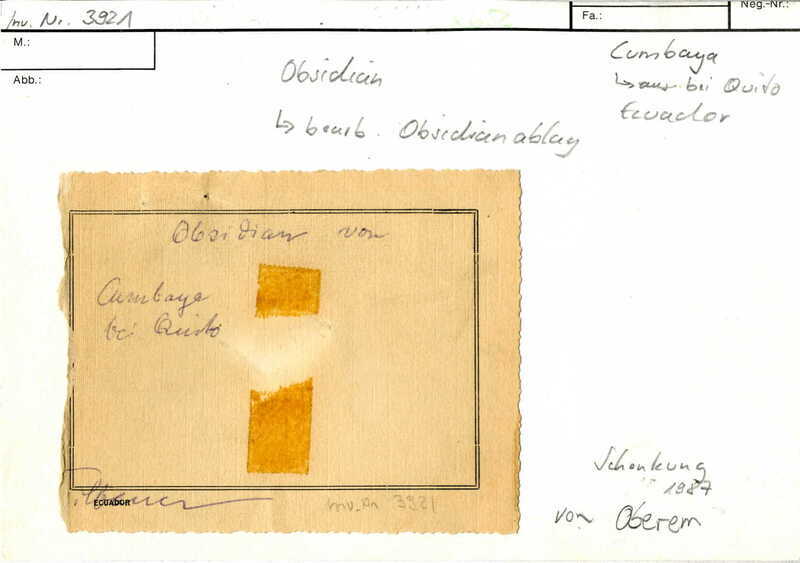 Inv. Nr. 3921
Fa.:
Neg.-Nr.:
M.:
Abb.:
Obsidian
↳ bearb. Obsidianablag
Cumbaya
↳ aus bei Quito
Ecuador
Obsidian von
Cumbaya
bei Quito
ECUADOR
Inv. Nr. 3921
Schenkung
1987
von Oberem